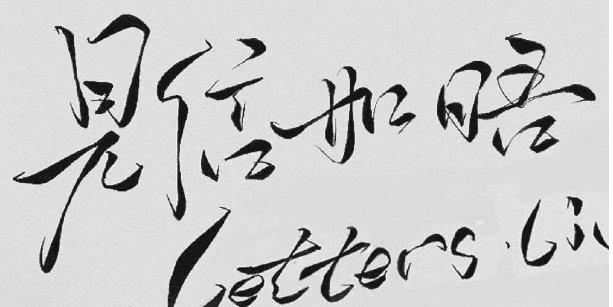 見信如晤
Letters.Li